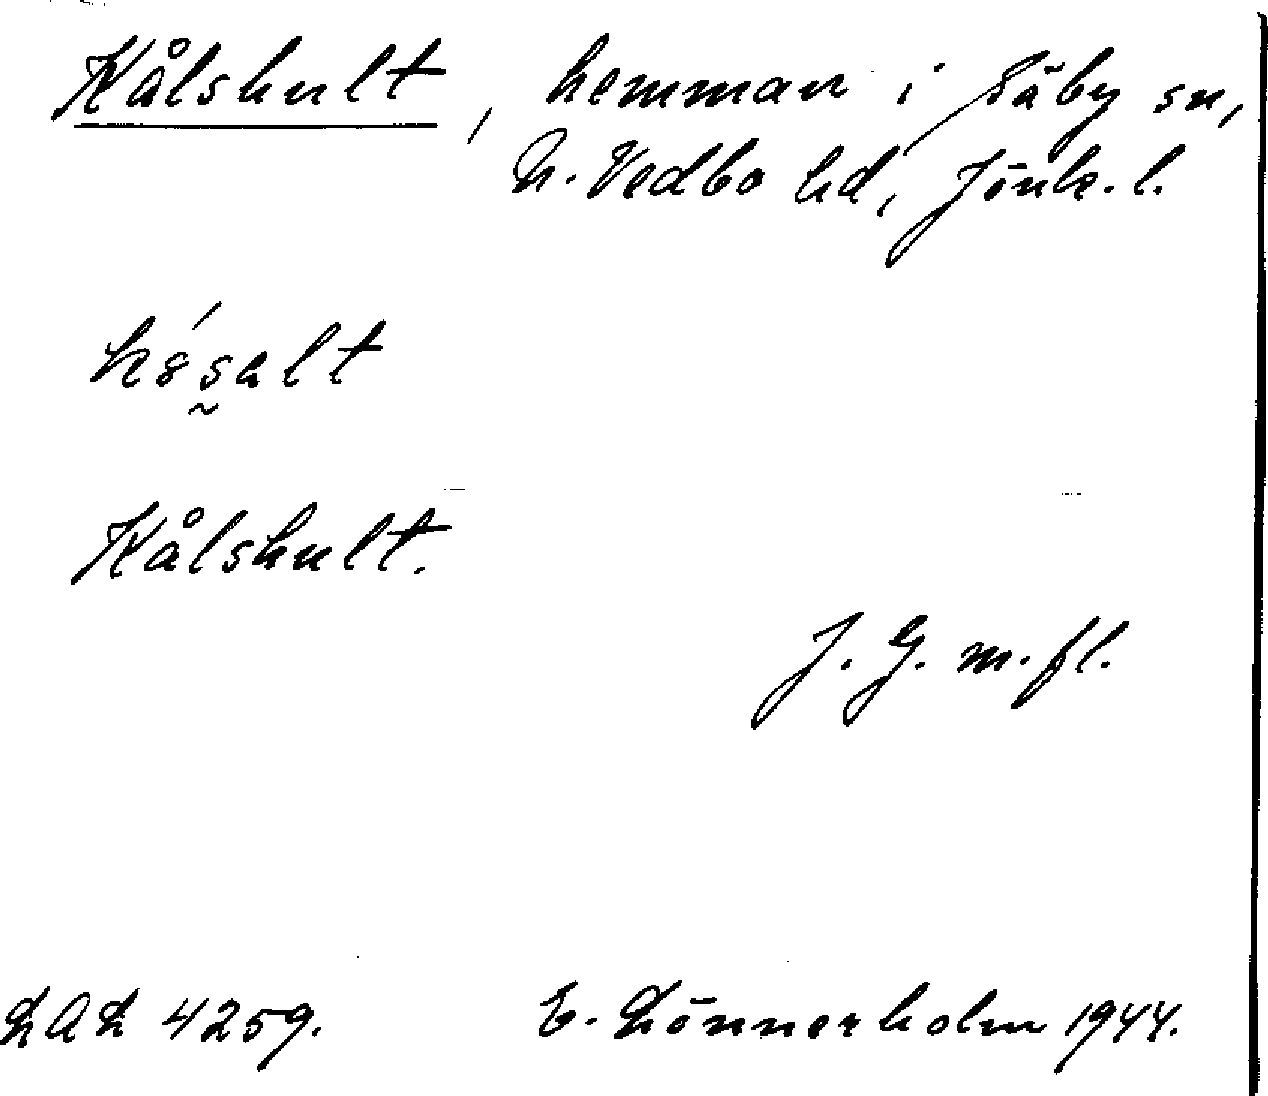 Kålshult, hemman i Säby sn,
N. Vedbo hd, Jönk. l.
Kålshult.
J. G. m. fl.
LAL 4259.
E. Lönnerholm 1944.